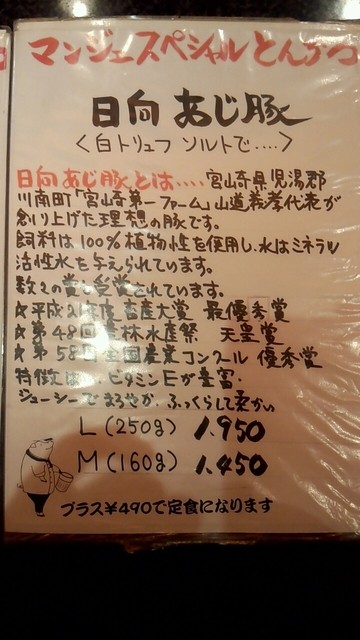 マンジェスペシャルとんかつ
日向 あじ豚
〈白トリュフ ソルトで....〉
日向あじ豚とは....宮崎県児湯郡
川南町「宮崎第一ファーム」山道義孝代表が
創り上げた理想の豚です。
飼料は100%植物性を使用し、水はミネラル
活性水を与えられています。
数々の賞を受賞されています。
☆平成21年度畜産大賞 最優秀賞
☆第48回農林水産祭 天皇賞
☆第58回全国農業コンクール 優秀賞
特徴は、ビタミンEが豊富・
ジューシーでまろやか、ふっくらして柔かい
L(250g) 1,950
M(160g) 1,450
プラス¥490で定食になります